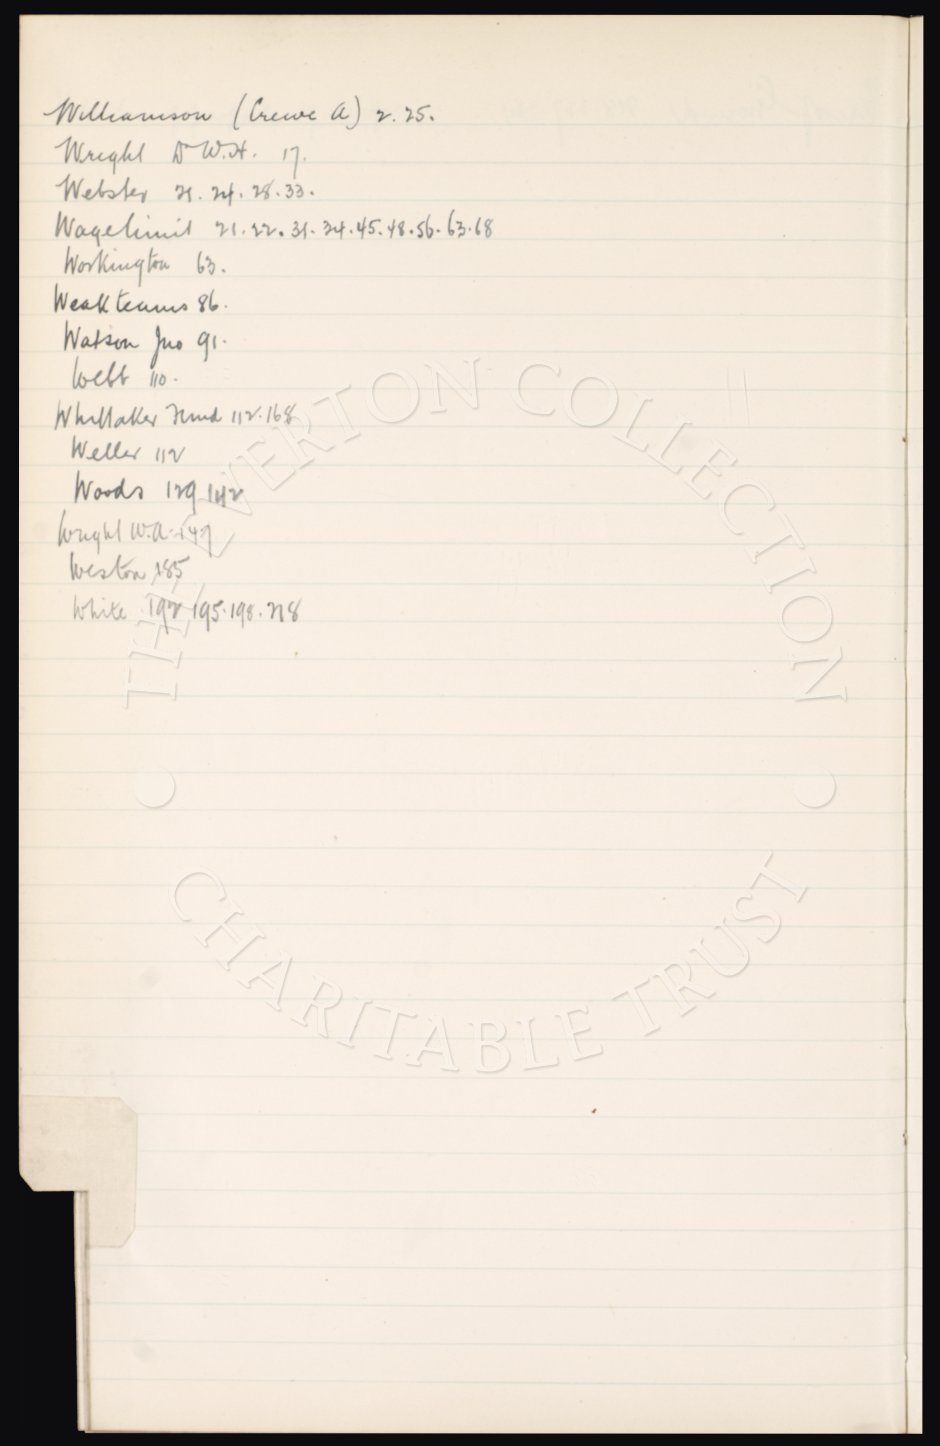 Williamson (Crewe A) 2. 25.
Wright Dr W.H. 17.
Webster 21. 24. 28. 33.
Wage limit 21. 22. 31. 34. 45. 48. 56. 63. 68
Workington 63.
Weak teams 86.
Watson Jno 91.
Webb 110.
Whittaker Fund 112. 168
Weller 112
Woods 129 142
Wright W.A. 147
Weston 185
White 192 195. 198. 218
THE EVERTON COLLECTION
CHARITABLE TRUST